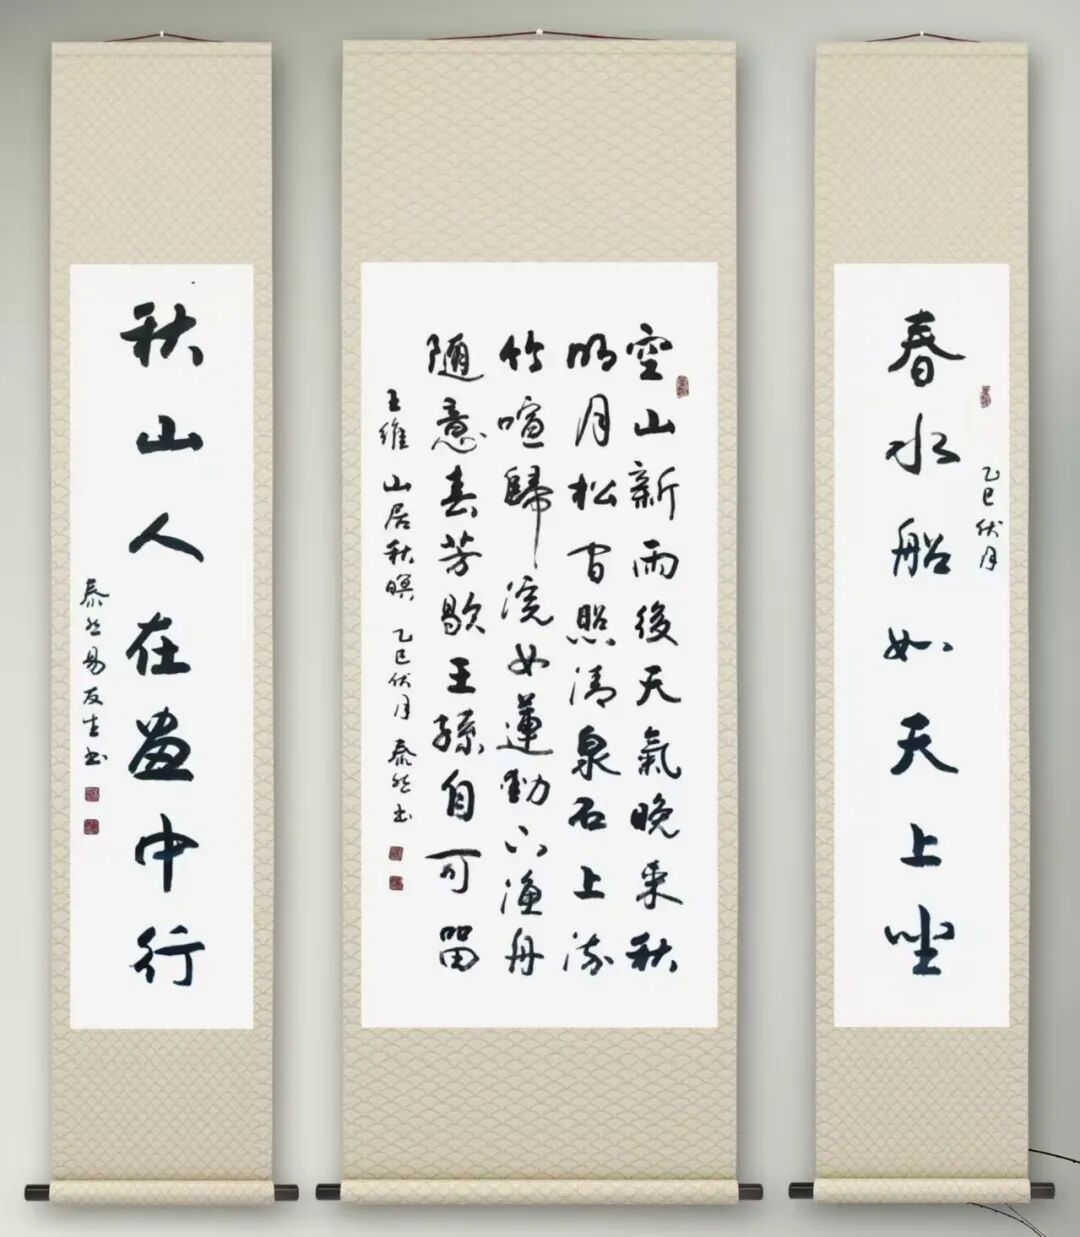 乙巳伏月
春水船如天上坐
空山新雨後天氣晚来秋
明月松间照清泉石上流
竹喧歸浣女蓮動下漁舟
随意春芳歇王孫自可留
王維 山居秋暝 乙巳伏月 泰然书
秋山人在畫中行
泰然易友生书